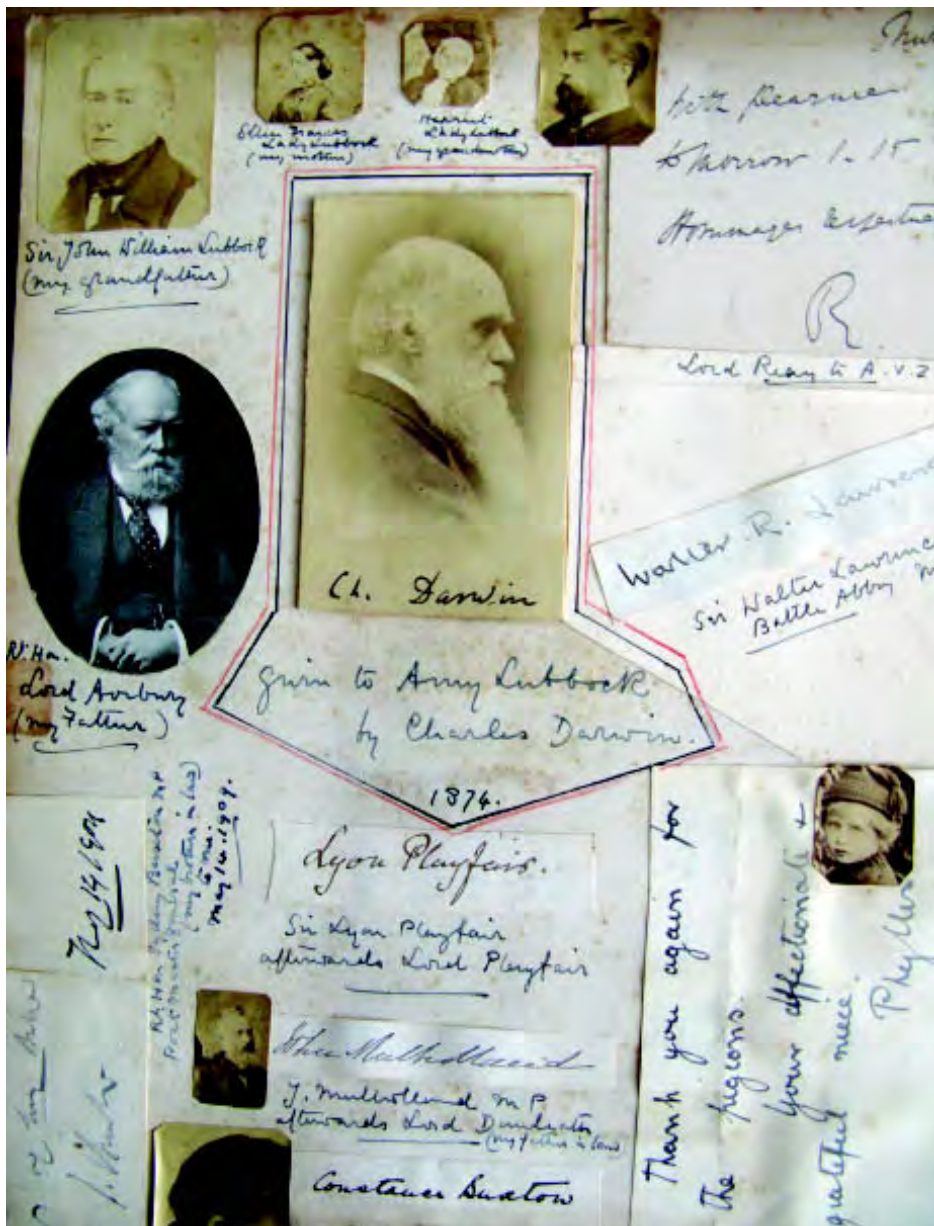 Sir John William Lubbock
(my grandfather)
Ellen Frances
Lady Lubbock
(my mother)
Harriet
Lady Lubbock
(my grandmother)
with pleasure
tomorrow 1.15
Hommages
R
Lord Reay to A.V.
Walter R. Lawrence
Sir Walter Lawrence
Battle Abbey
Ch. Darwin
given to Amy Lubbock
by Charles Darwin.
1874.
Rt. Hon.
Lord Avebury
(my Father)
May 14 1909
Rt Hon Sydney Buxton MP
Postmaster General
(my brother in law)
to me.
May 14. 1909.
Lyon Playfair.
Sir Lyon Playfair
afterwards Lord Playfair
John Mulholland
J. Mulholland M P
afterwards Lord Dunleath
(my father in law)
Constance Buxton
Thank you again for
the pigeons.
your affectionate &
grateful niece.
Phyllis